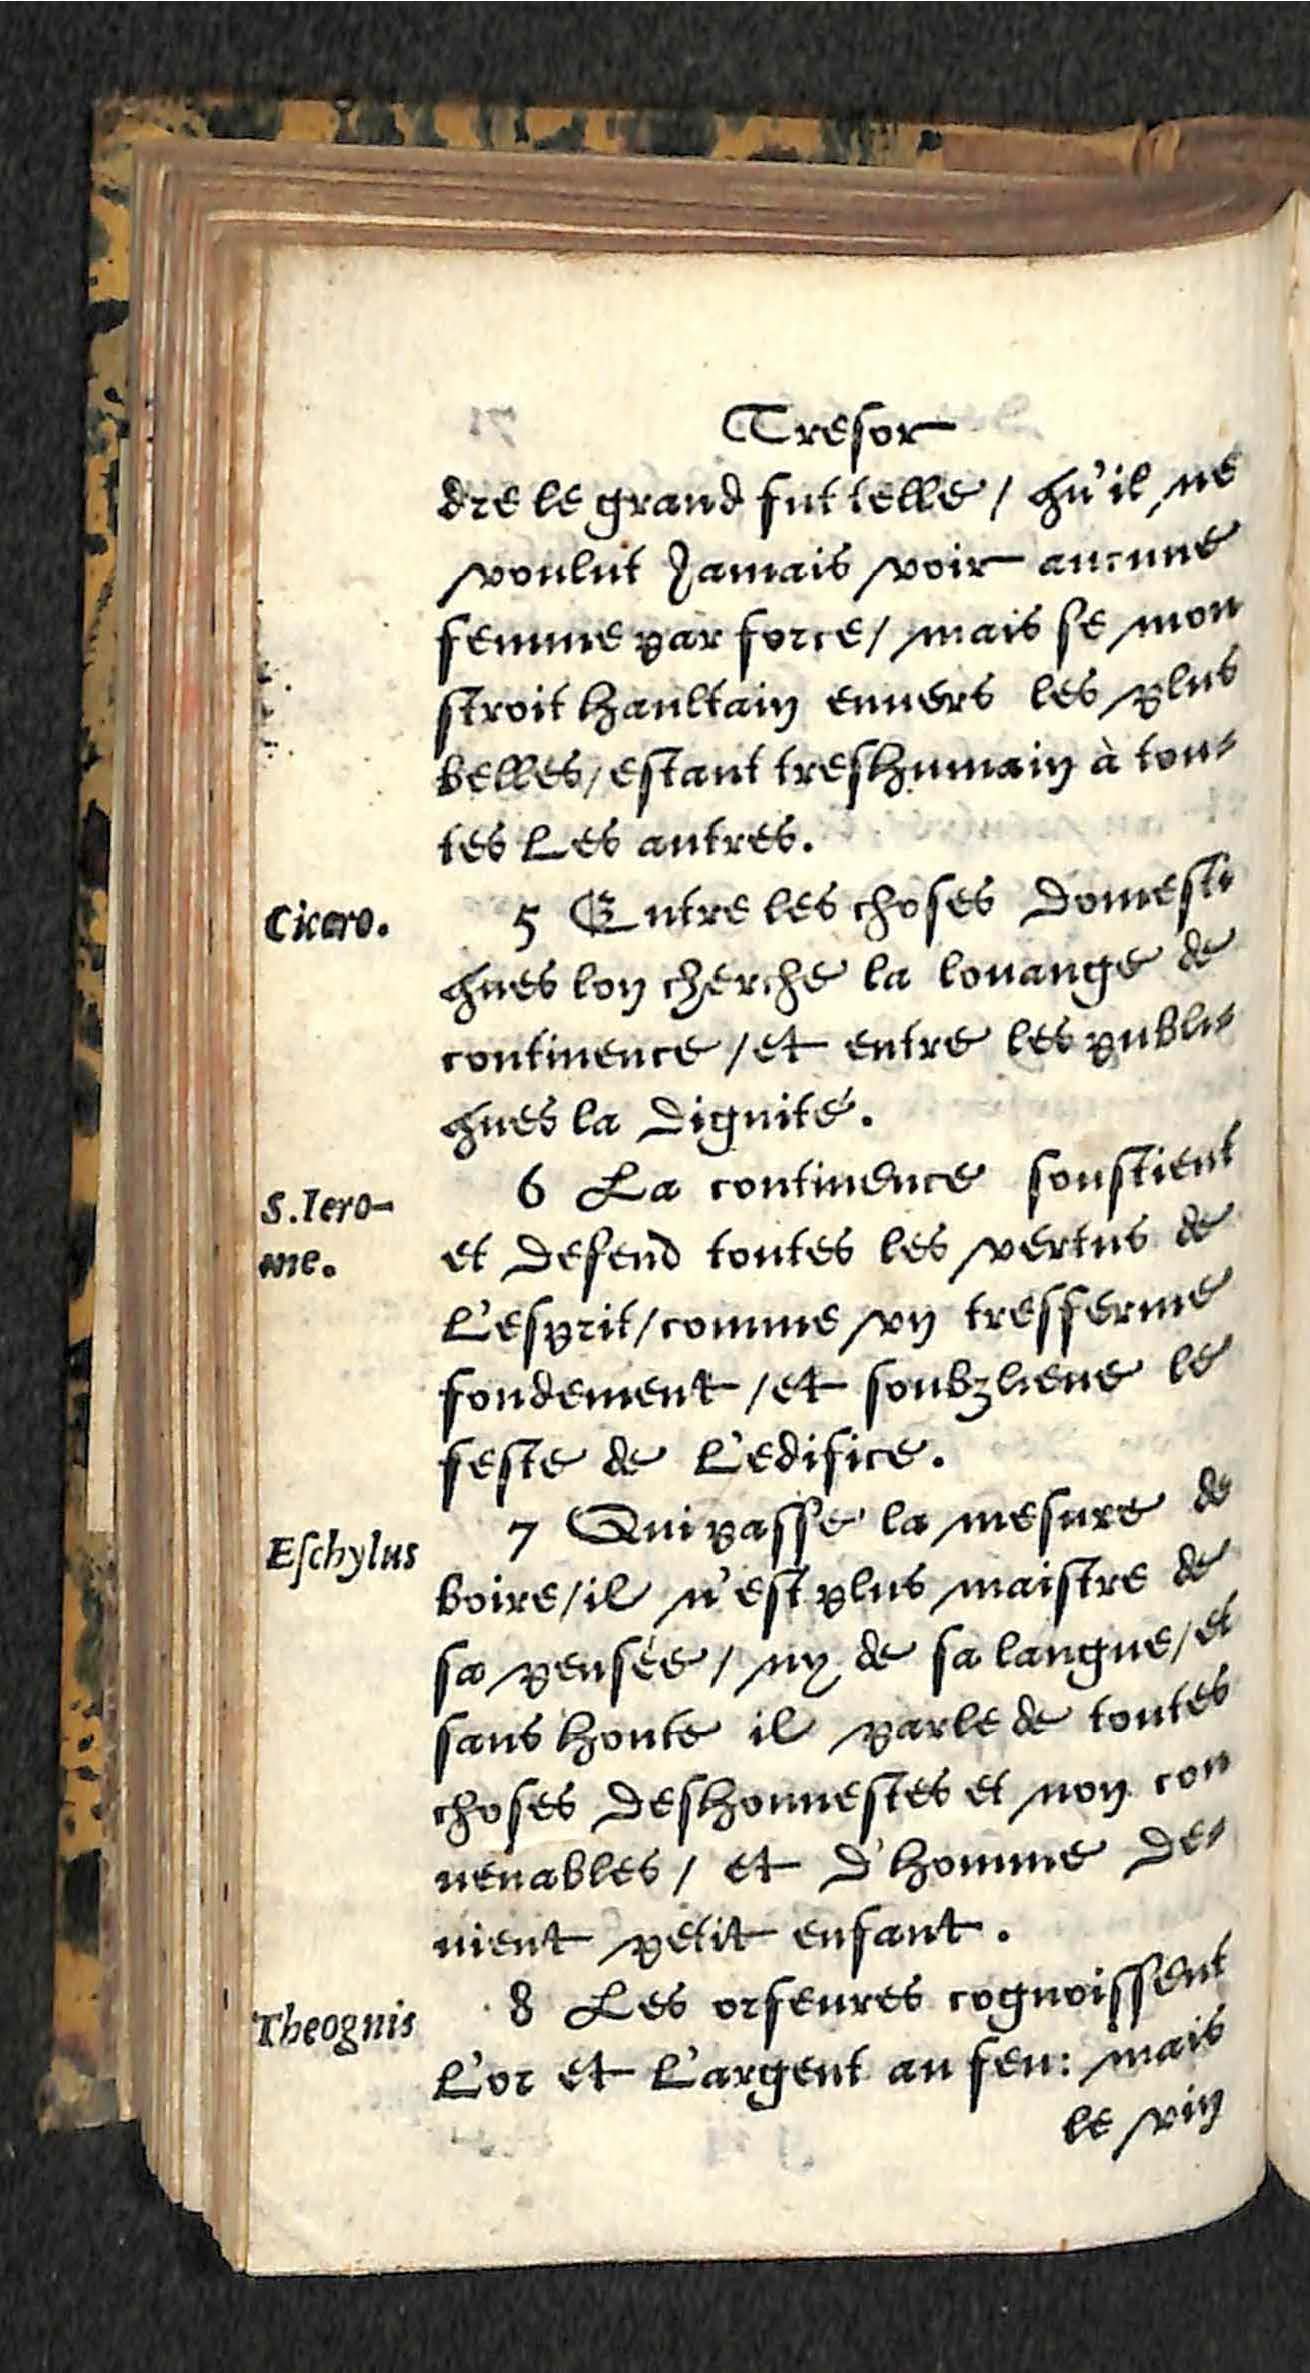 Tresor
dre le grand fut telle / qu'il ne
voulut Jamais voir aucune
femme par force / mais se mon
stroit haultain enuers les plus
belles / estant treshumain à tou-
tes Les autres.
Cicero.
5 Entre les choses Domesti
ques lon cherche la louange de
continence / et entre les publi-
ques la Dignité.
S. Iero-
me.
6 La continence soustient
et Defend toutes les vertus de
L'esprit / comme vn tresferme
fondement / et soubzlieue le
feste de L'edifice.
Eschylus
7 Qui passe la mesure de
boire / il n'est plus maistre de
sa pensée / ny de sa langue / et
sans honte il parle de toutes
choses Deshonnestes et non con
uenables / et D'homme De-
uient petit enfant.
Theognis
8 Les orfeures cognoissent
L'or et L'argent au feu: mais
le vin